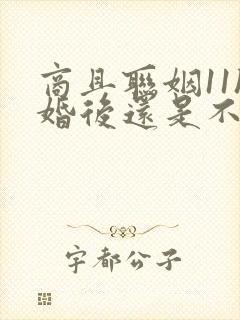 商且聯姻11
婚後還是不
宇都公子